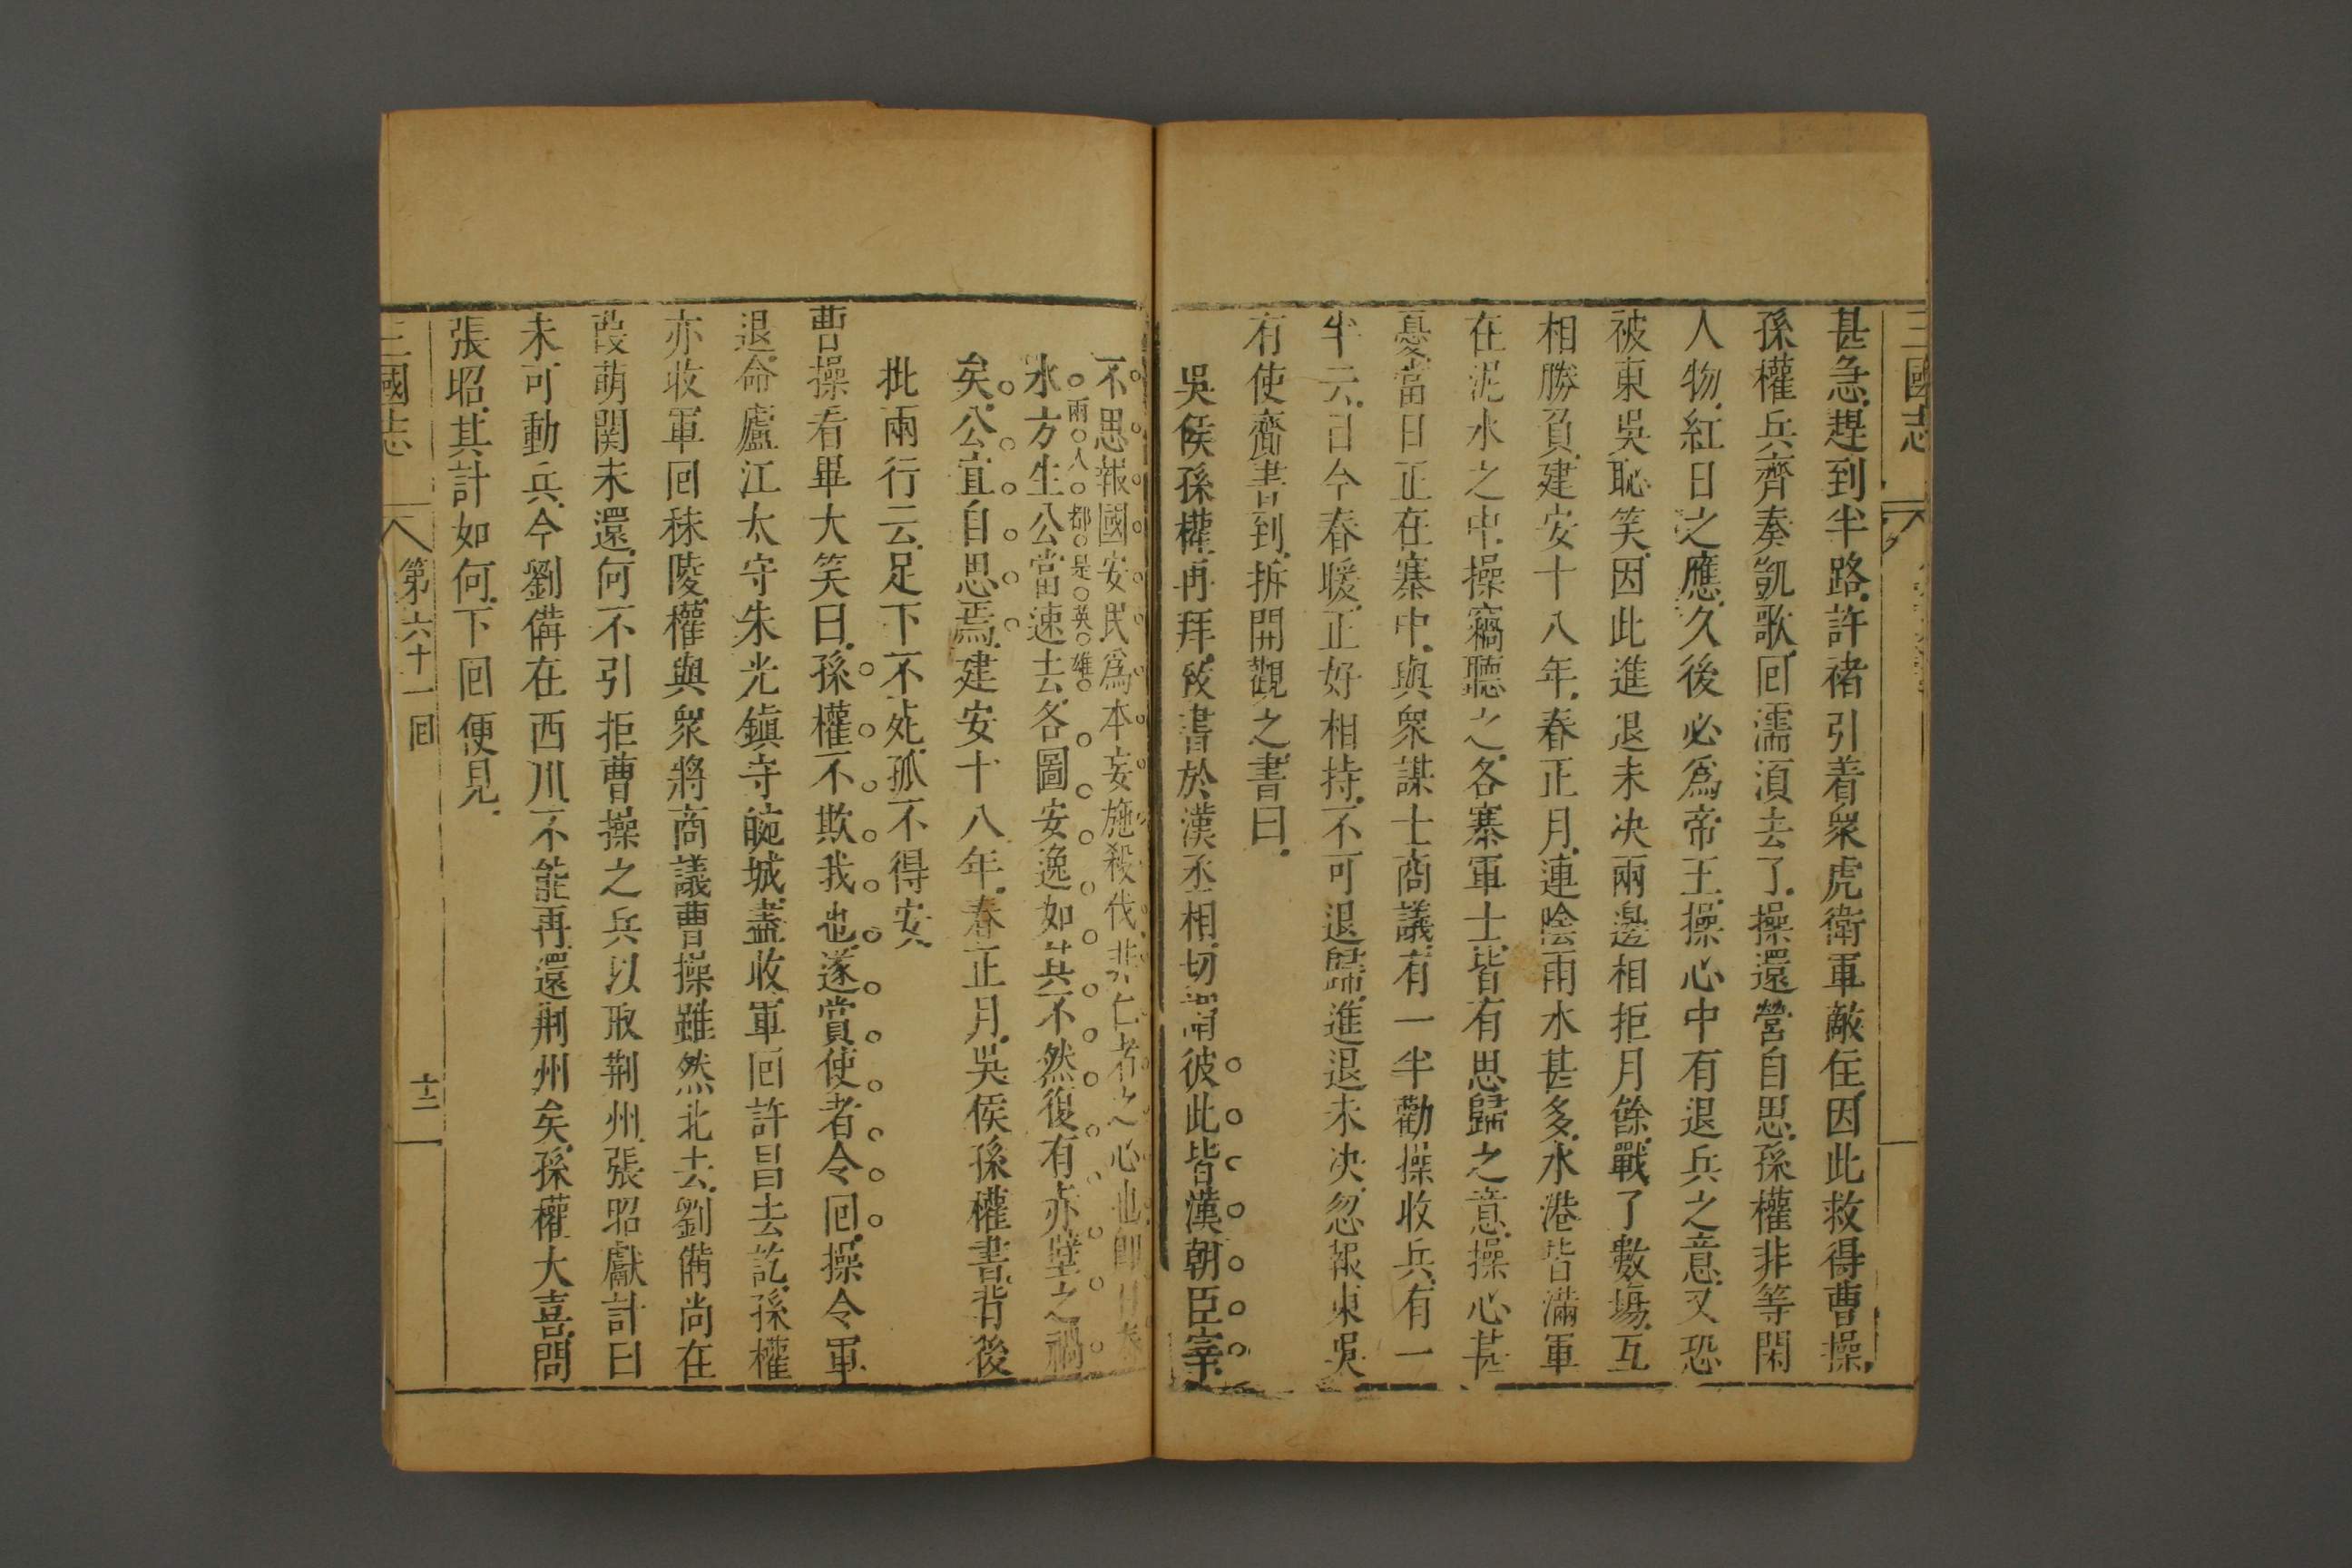 三國志
甚急趕到半路許褚引着衆虎衛軍敵住因此救得曹操
孫權兵齊奏凱歌回濡須去了操還營自思孫權非等閑
人物紅日之應久後必爲帝王操心中有退兵之意又恐
被東吳恥笑因此進退未決兩邊相拒月餘戰了數塲互
相勝負建安十八年春正月連陰雨水甚多水港皆滿軍
在泥水之中操竊聽之各寨軍士皆有思歸之意操心甚
憂當日正在寨中與衆謀士商議有一半勸操收兵有一
半云目今春暖正好相持不可退歸進退未决忽報東吳
有使齎書到拆開觀之書曰
吳侯孫權再拜致書於漢丞相切謂彼此皆漢朝臣宰
不思報國安民爲本妄施殺伐非仁者之心也即日春
兩人都是英雄
水方生公當速去各圖安逸如其不然復有赤壁之禍
矣公宜自思焉建安十八年春正月吳侯孫權書背後
批兩行云足下不死孤不得安
曹操看畢大笑曰孫權不欺我也遂賞使者令回操令軍
退命廬江太守朱光鎮守皖城盡收軍回許昌去訖孫權
亦收軍回秣陵權與衆將商議曹操雖然北去劉備尚在
葭萌関未還何不引拒曹操之兵以取荆州張昭獻計曰
未可動兵今劉備在西川不能再還荆州矣孫權大喜問
張昭其計如何下回便見
三國志 第六十一回 十二